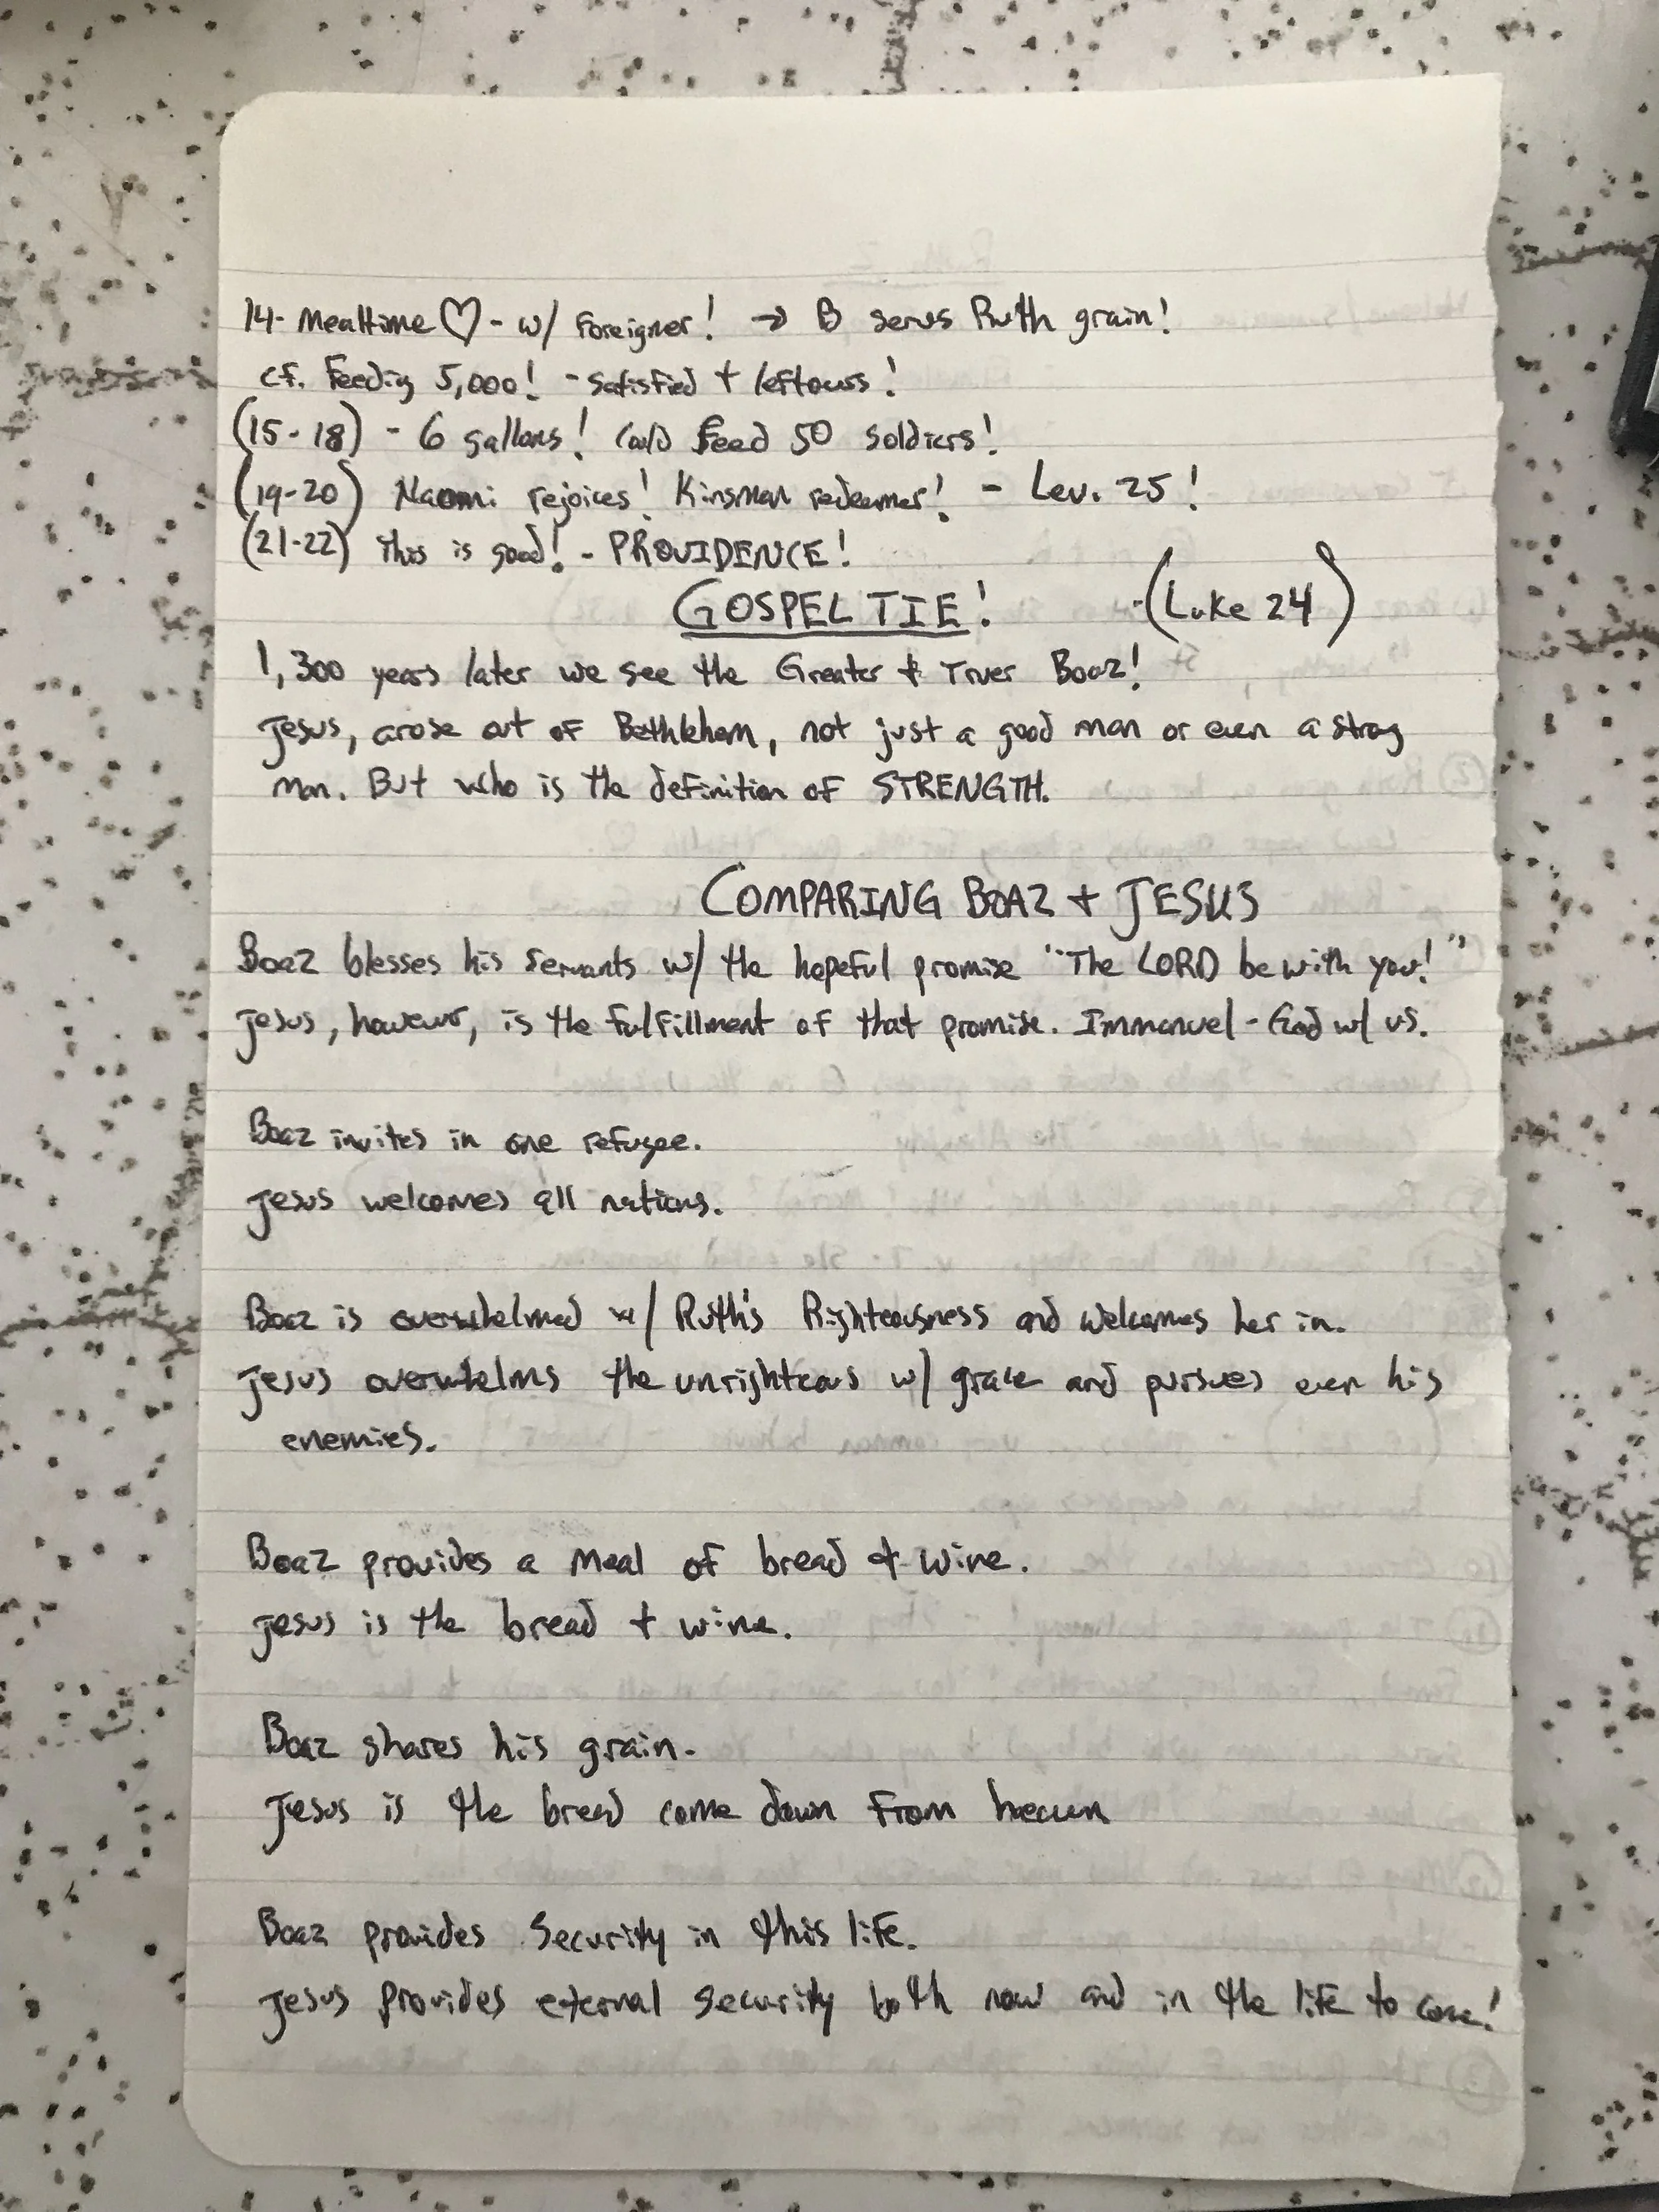 14- Mealtime ♡ - w/ Foreigner! → B serves Ruth grain!
cf. Feeding 5,000! - Satisfied + leftovers!
(15-18) - 6 gallons! Could Feed 50 Soldiers!
(19-20) Naomi rejoices! Kinsman redeemer! - Lev. 25!
(21-22) This is good! - PROVIDENCE!
GOSPEL TIE! -(Luke 24)
1,300 years later we see the Greater & Truer Boaz!
Jesus, arose out of Bethlehem, not just a good man or even a strong
man. But who is the definition of STRENGTH.
COMPARING BOAZ + JESUS
Boaz blesses his servants w/ the hopeful promise "The LORD be with you!"
Jesus, however, is the fulfillment of that promise. Immanuel - God w/ us.
Boaz invites in one refugee.
Jesus welcomes all nations.
Boaz is overwhelmed w/ Ruth's Righteousness and welcomes her in.
Jesus overwhelms the unrighteous w/ grace and pursues even his
enemies.
Boaz provides a meal of bread & wine.
Jesus is the bread + wine.
Boaz shares his grain.
Jesus is the bread come down from heaven
Boaz provides Security in this life.
Jesus provides eternal security both now and in the life to come!